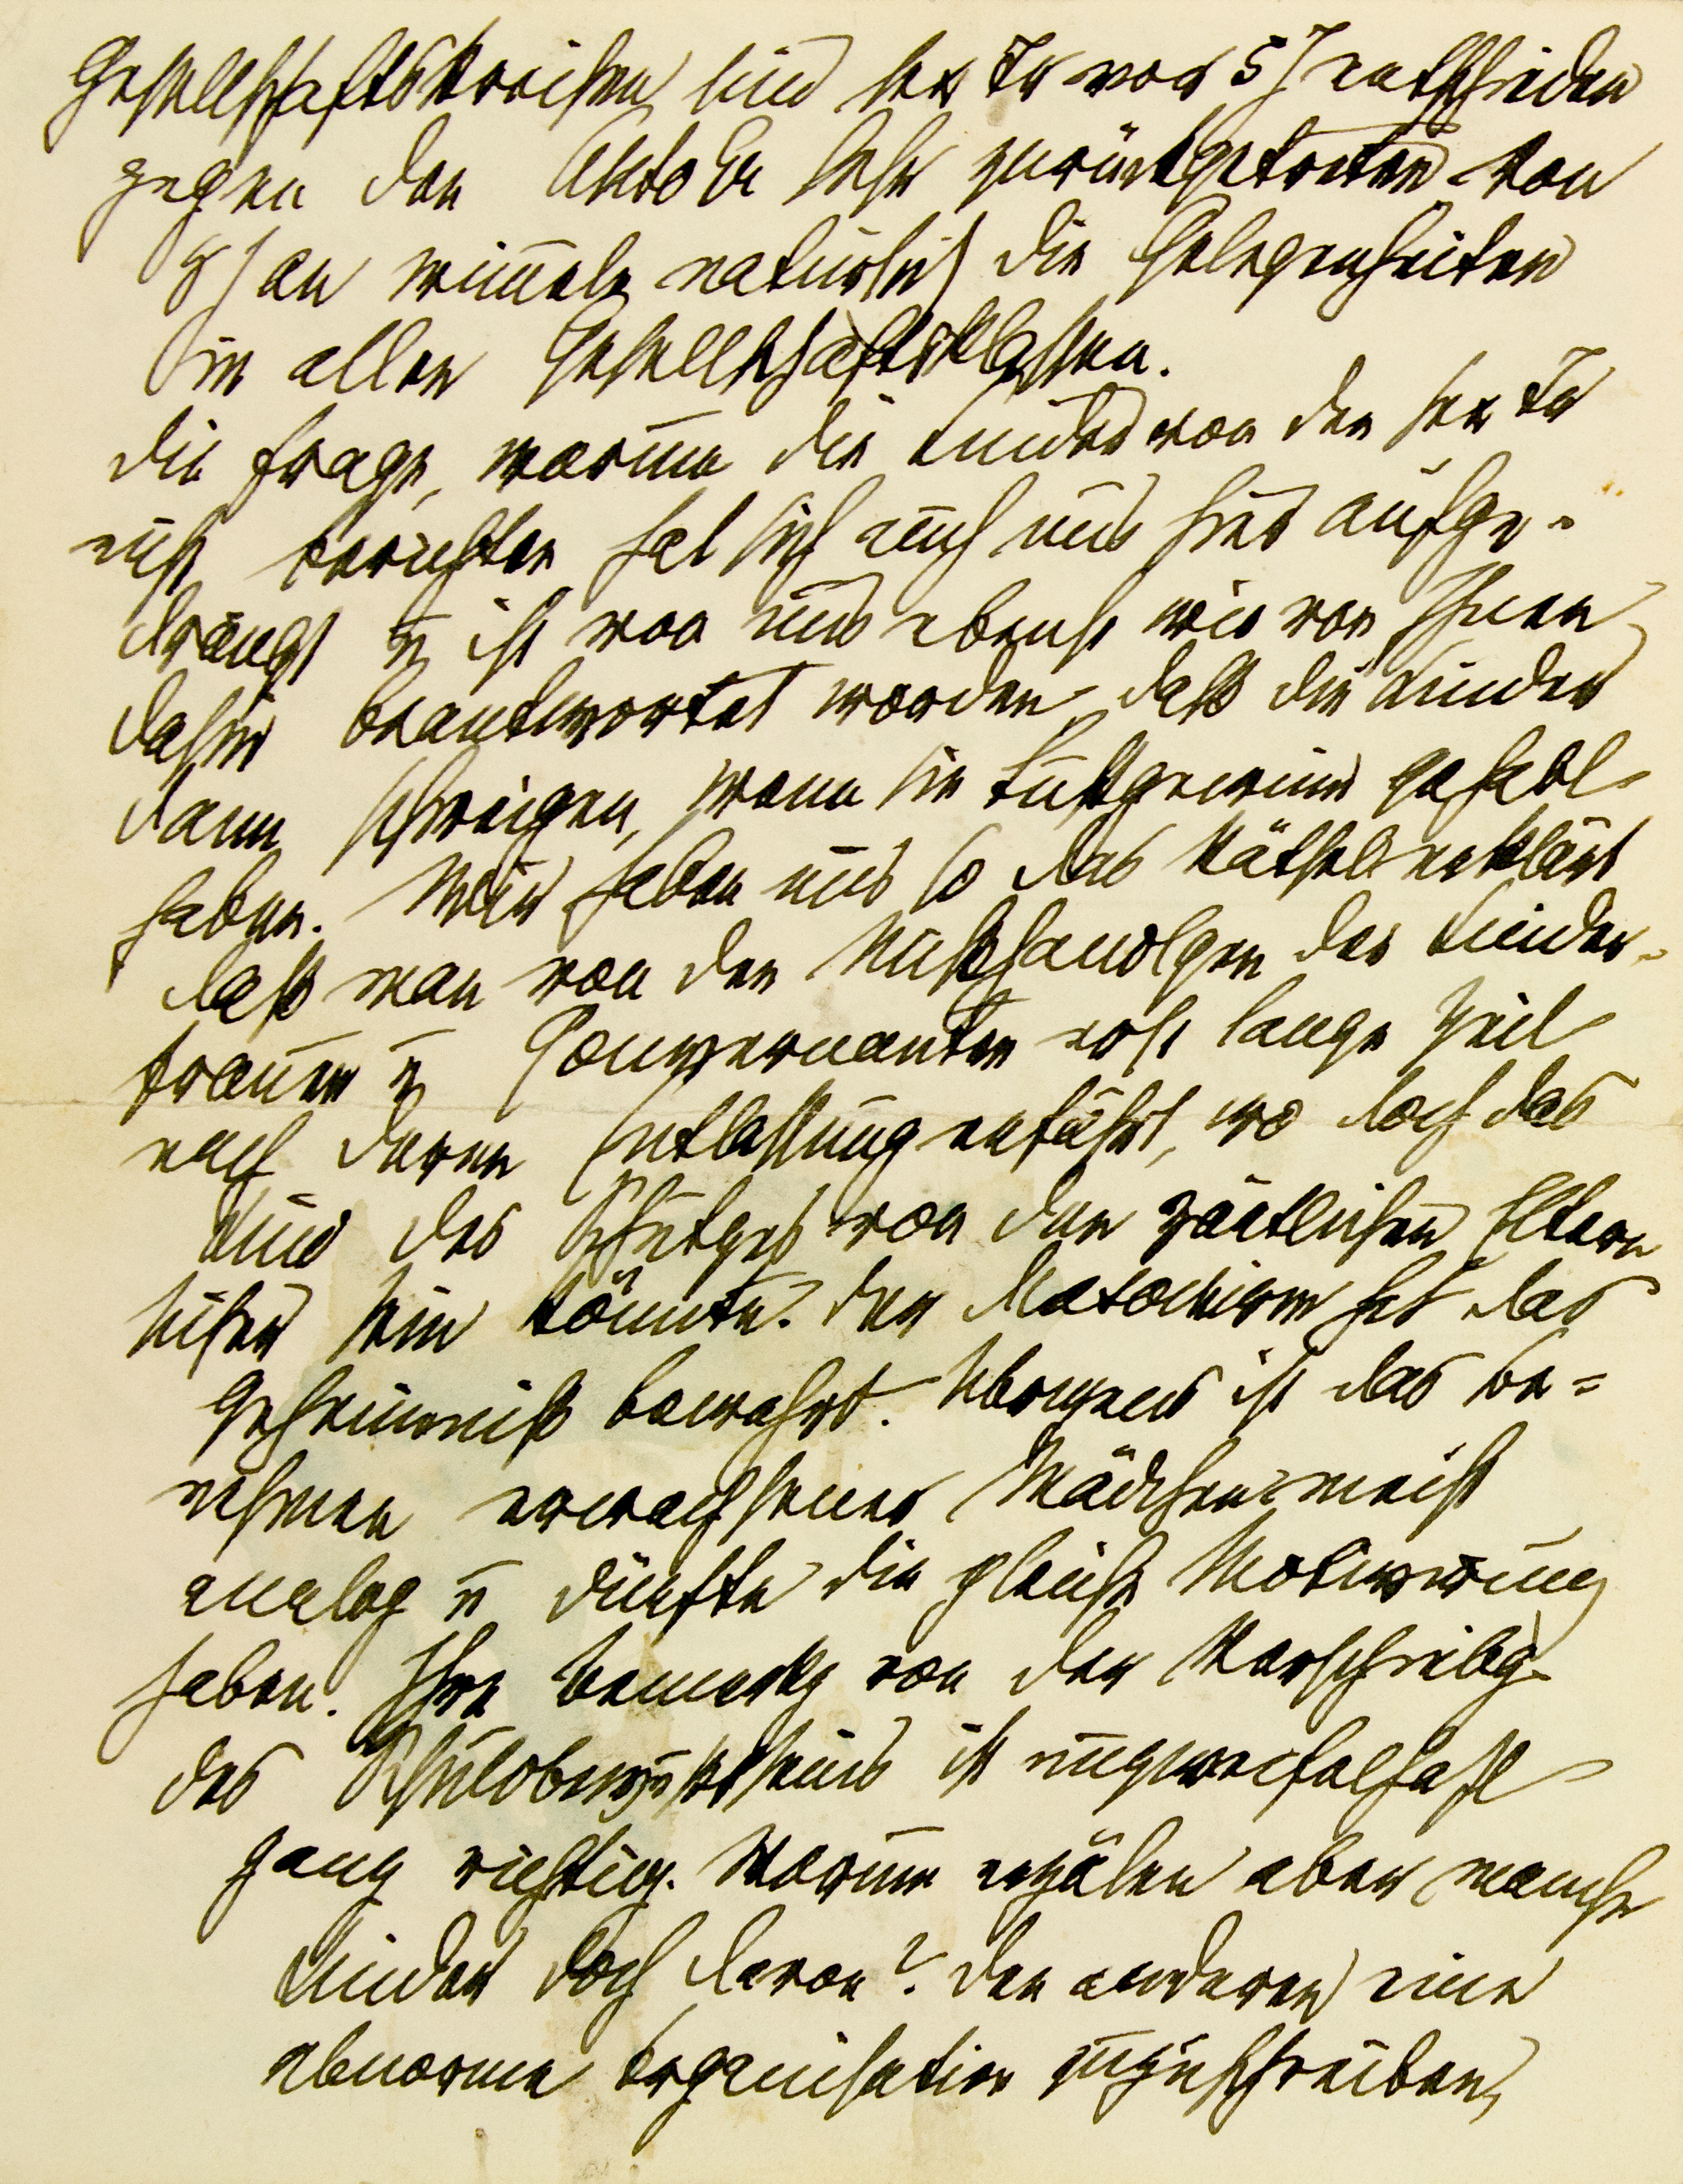 Gesellschaftskreisen sind sex Tr vor 5 J entschieden
gegen den Autoer sehr zurückgetreten. Von
8 J an wimmeln natürlich die Gelegenheiten
in allen Gesellschaftsklassen.
Die Frage, warum die Kinder von den sex Tr
nicht berichten hat sich auch uns hier aufge-
drängt u ist von uns ebenso wie von Ihnen
dahin beantwortet worden, daß die Kinder
dann schweigen, wenn sie Lustgewinn gehabt
haben. Wir haben uns so das Rätsel erklärt
daß man von den Mißhandlgen der Kinder-
frauen u Gouvernanten erst lange Zeit
nach deren Entlassung erfährt, wo doch das
Kind des Schutzes von den zärtlichen Eltern
sicher sein könnte. Der Masochism hat das
Geheimniß bewahrt. Übrigens ist das Be=
nehmen erwachsener Mädchen meist
analog u dürfte die gleiche Motivirung
haben. Ihre Bemerkg von der Verschiebg
des Schuldbewußtseins ist unzweifelhaft
ganz richtig. Warum erzälen aber manche
Kinder doch davon? Den anderen eine
abnorme Organisation zuzuschreiben,